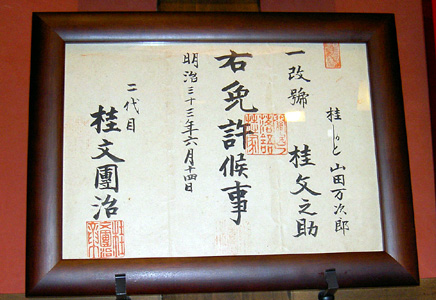 桂 山田万次郎
一改號 桂文之助
右免許候事
明治三十三年六月十四日
二代目
桂文團治